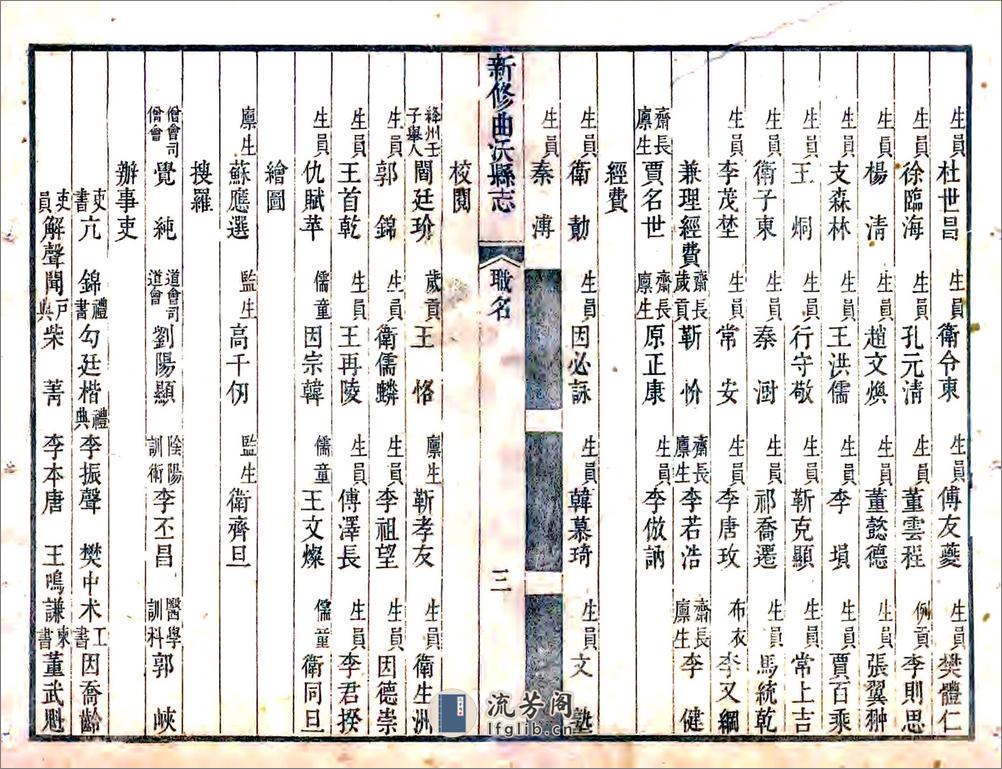 生員杜世昌 生員衛令東 生員傅友夔 生員樊體仁
生員徐臨海 生員孔元清 生員董雲程 例貢李則思
生員楊清 生員趙文煥 生員董懿德 生員張翼翀
生員支森林 生員王洪儒 生員李塤 生員賈百乘
生員王炯 生員行守敬 生員靳克顯 生員常上吉
生員衛子東 生員秦澍 生員祁喬遷 生員馬統乾
生員李茂埜 生員常安 生員李唐玫 布衣李又綱
兼理經費 齋長歲貢靳忻 齋長廩生李若浩 齋長廩生李健
齋長廩生賈名世 齋長廩生原正康 生員李倣訥
經費
生員衛勷 生員因必詠 生員韓慕琦 生員文塾
生員秦溥
新修曲沃縣志 職名 三
校閱
絳州壬子舉人閻廷玠 歲貢王恪 廩生靳孝友 生員衛生洲
生員郭錦 生員衛儒麟 生員李祖望 生員因德崇
生員王首乾 生員王再陵 生員傅澤長 生員李君揆
生員仇賦華 儒童因宗韓 儒童王文燦 儒童衛同旦
繪圖
廩生蘇應選 監生高千仞 監生衛齊旦
搜羅
僧會司僧會覺純 道會司道會劉陽顯 陰陽訓術李丕昌 醫學訓科郭峽
辦事吏
吏書亢錦 禮書勾廷楷 禮典李振聲 樊中木 工書因喬齡
吏員解聲聞 戶典柴菁 李本唐 王鳴謙 柬書董武魁
流芳阁
lfglib.cn